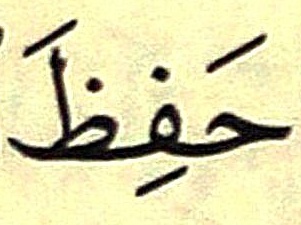 حَفِظَ